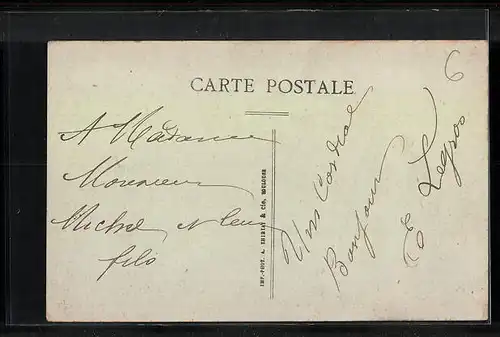 CARTE POSTALE
6
A Madame
Monsieur
Michel et leur
fils
IMP.-PHOT. A. THIRIAT & Cie, TOULOUSE
Un Cordial
Bonjour
E Legros